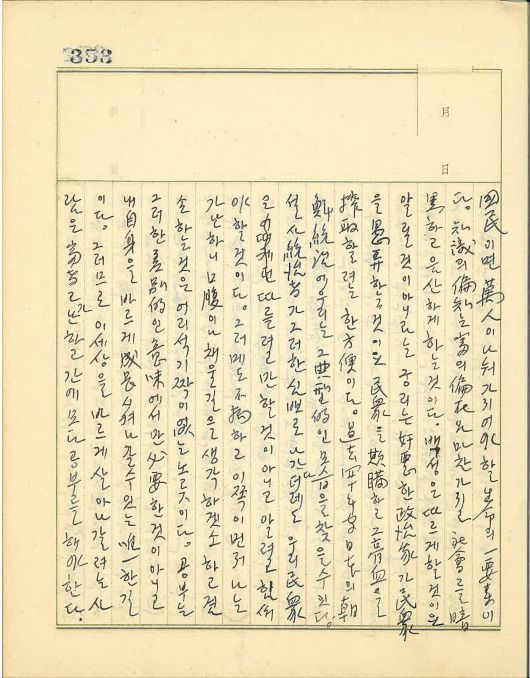 358
月
日
國民이면 萬人이 나눠 가지어야 할 生命의 一要素이
다. 知識의 偏知는 富의 偏在와 마찬가지로 社會를 暗
黑하고 음산하게 하는 것이다. 백성은 따르게 할 것이요
알릴 것이 아니라는 공리는 奸惡한 政治家가 民衆
을 愚弄하는 것이요 民衆을 欺瞞하고 그 膏血을
搾取하려는 한 方便이다. 過去 四十年 日本의 朝
鮮統治에 우리는 그 典型的인 모습을 찾을 수 있다.
설사 統治者가 그러한 심뽀로 나간다 해도 우리 民衆
은 따르려만 할 것이 아니고 알려고 힘써
야 할 것이다. 그럼에도 不拘하고 이쪽이 먼저 나는
가난하니 口腹이나 채울 길을 생각하겟소 하고 결
소하는 것은 어리석기 짝이 없는 노릇이다. 공부는
그러한 差別的인 意味에서만 必要한 것이 아니고
내 自身을 바르게 成長시켜 나갈 수 있는 唯一한 길
이다. 그러므로 이 세상을 바르게 살아나갈려는 사
람은 富하고 가난하고 간에 모다 공부를 해야 한다.